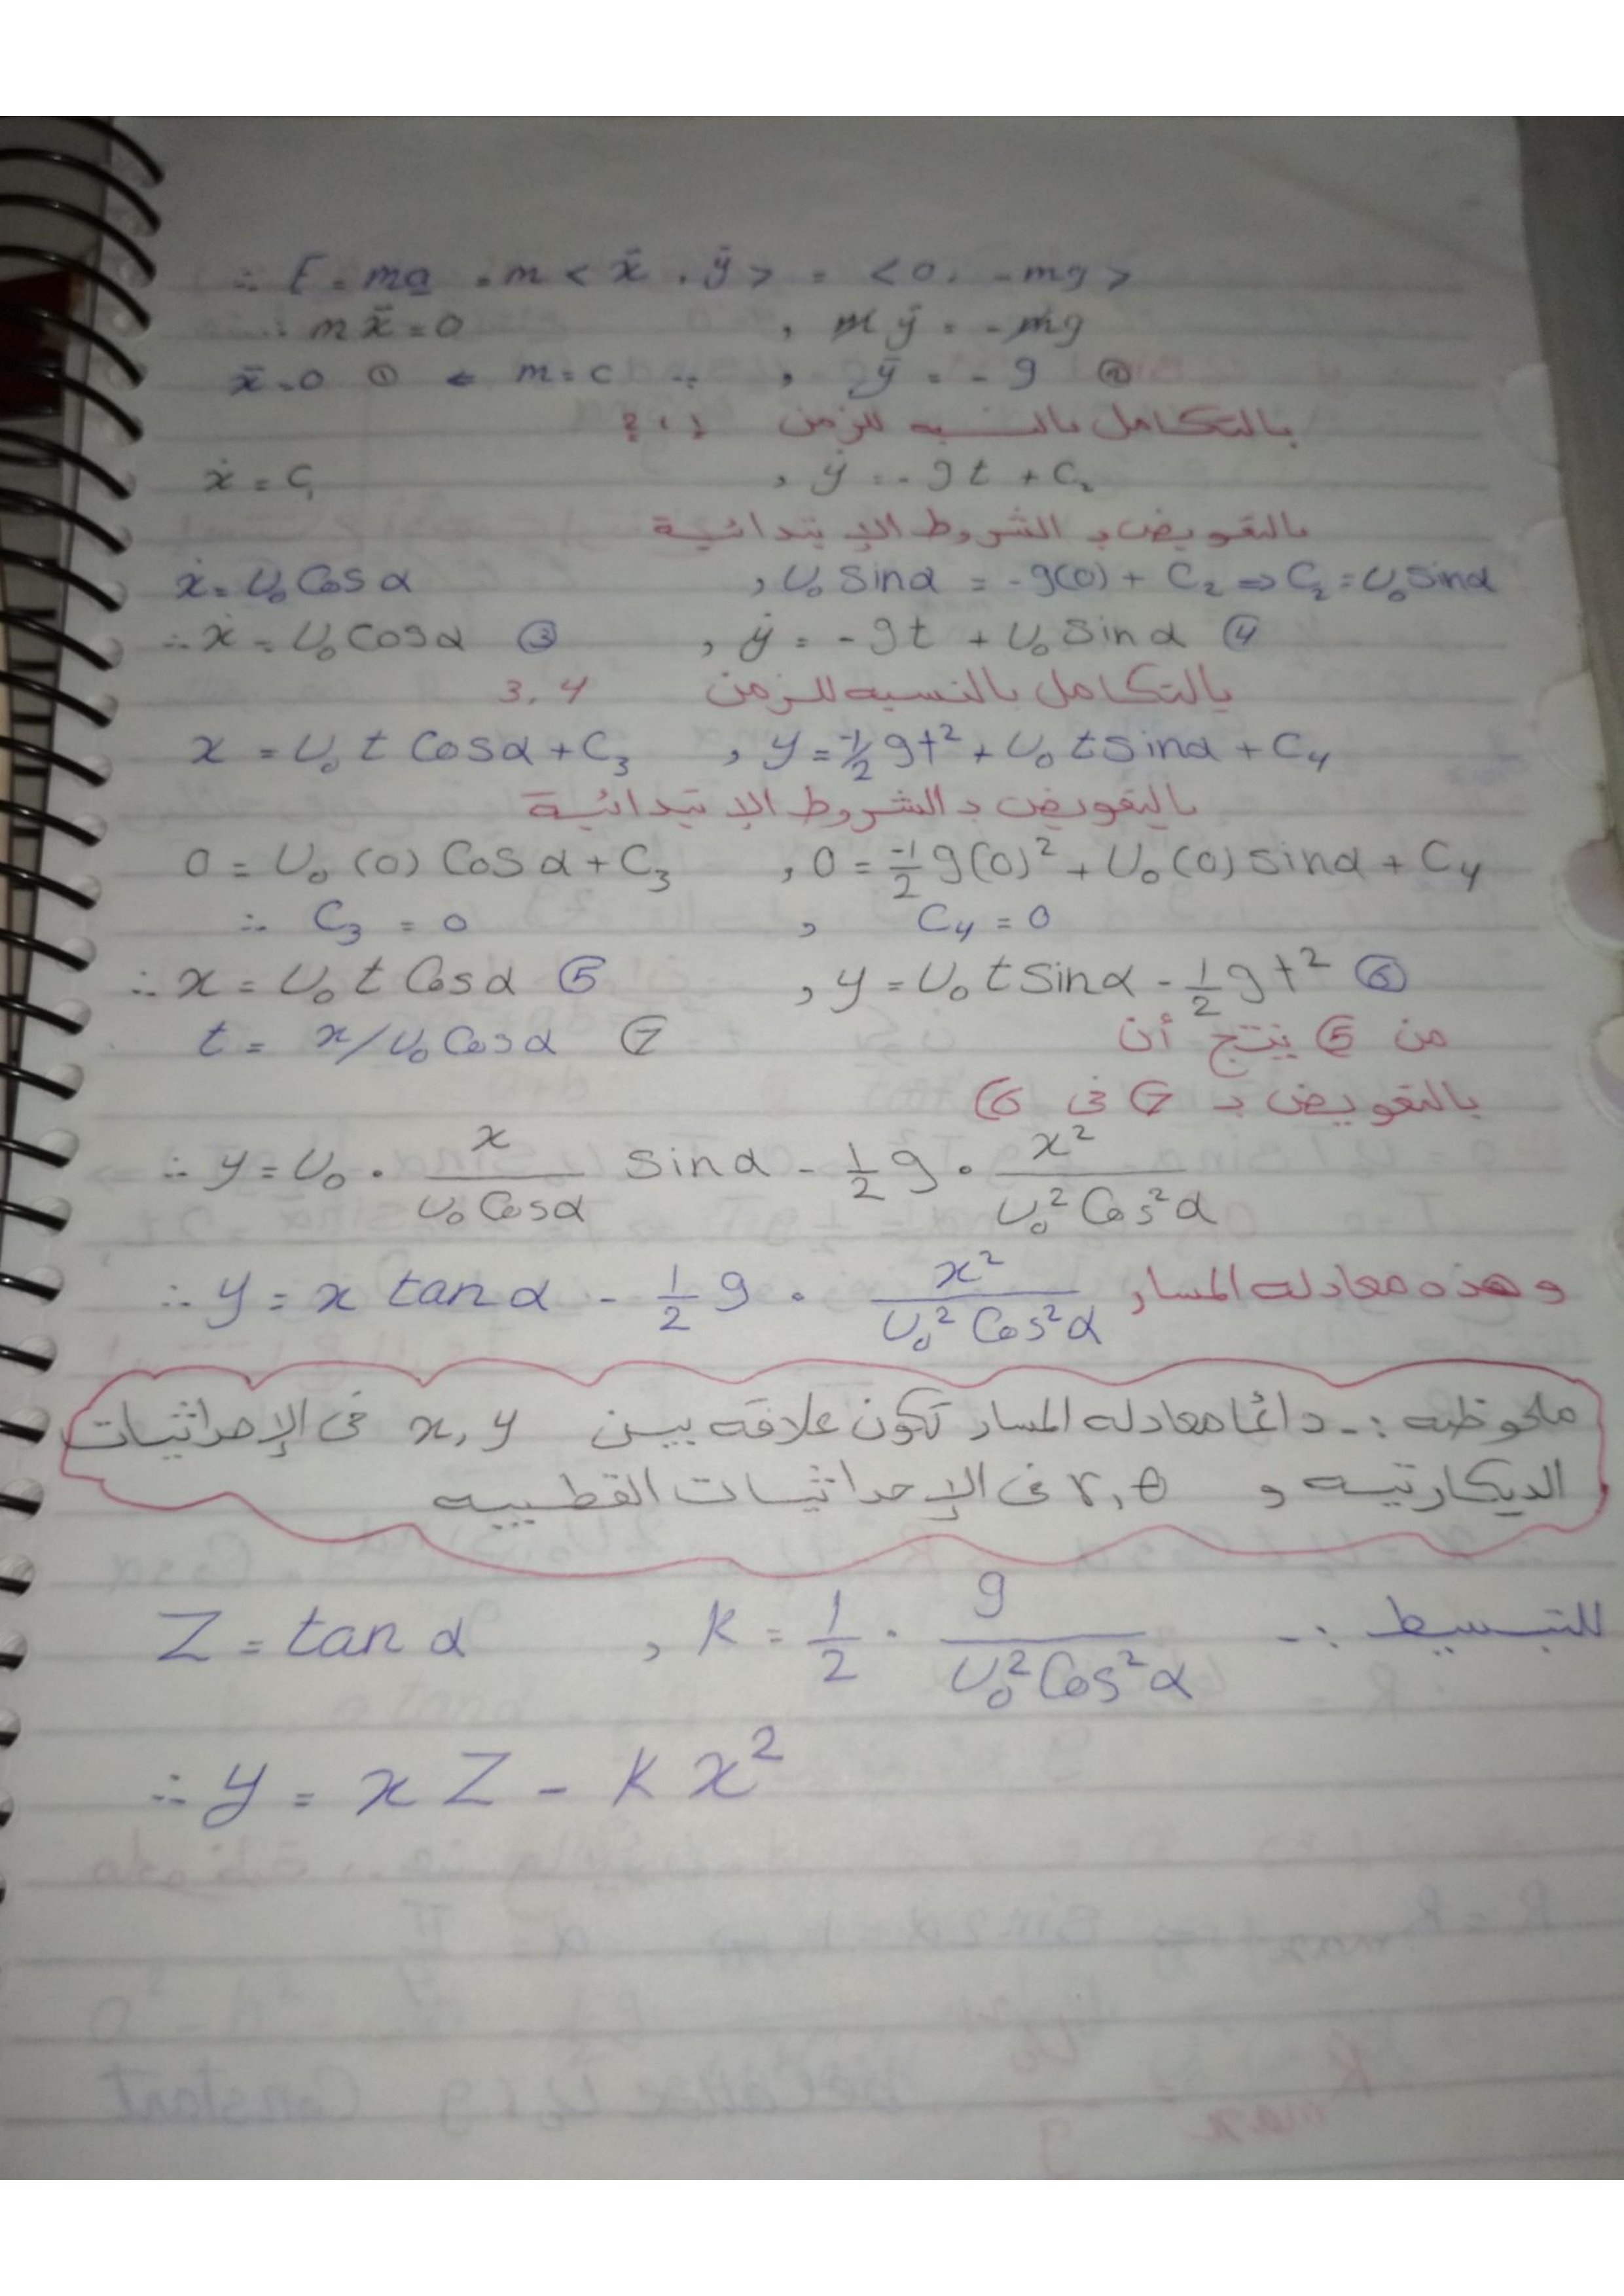 ∴ F = ma = m < ẍ , ÿ > = < 0 , -mg >
∴ mẍ = 0 , m ÿ = - mg
ẍ = 0 ① ← m = c ∵ , ÿ = - g ②
بالتكامل بالنسبه للزمن 1 ، 2
ẋ = C₁ , ẏ = - gt + C₂
بالتعويض بـ الشروط الإبتدائية
ẋ = U₀ Cos α , U₀ Sin α = -g(0) + C₂ ⇒ C₂ = U₀ Sin α
∴ ẋ = U₀ Cos α ③ , ẏ = - gt + U₀ Sin α ④
بالتكامل بالنسبه للزمن 3 , 4
x = U₀ t Cos α + C₃ , y = -1/2 gt² + U₀ t sin α + C₄
بالتعويض بـ الشروط الإبتدائية
0 = U₀ (0) Cos α + C₃ , 0 = -1/2 g(0)² + U₀ (0) sin α + C₄
∴ C₃ = 0 , C₄ = 0
∴ x = U₀ t Cos α ⑤ , y = U₀ t Sin α - 1/2 gt² ⑥
من ⑤ ينتج أن t = x / U₀ Cos α ⑦
بالتعويض بـ ⑦ فى ⑥
∴ y = U₀ · x / U₀ Cos α sin α - 1/2 g · x² / U₀² Cos² α
∴ y = x tan α - 1/2 g · x² / U₀² Cos² α وهذه معادله المسار
ملحوظه :- دائما معادله المسار تكون علاقه بين x, y فى الإحداثيات
الديكارتيه و r, θ فى الإحداثيات القطبيه
للتبسيط :- Z = tan α , K = 1/2 · g / U₀² Cos² α
∴ y = x Z - K x²